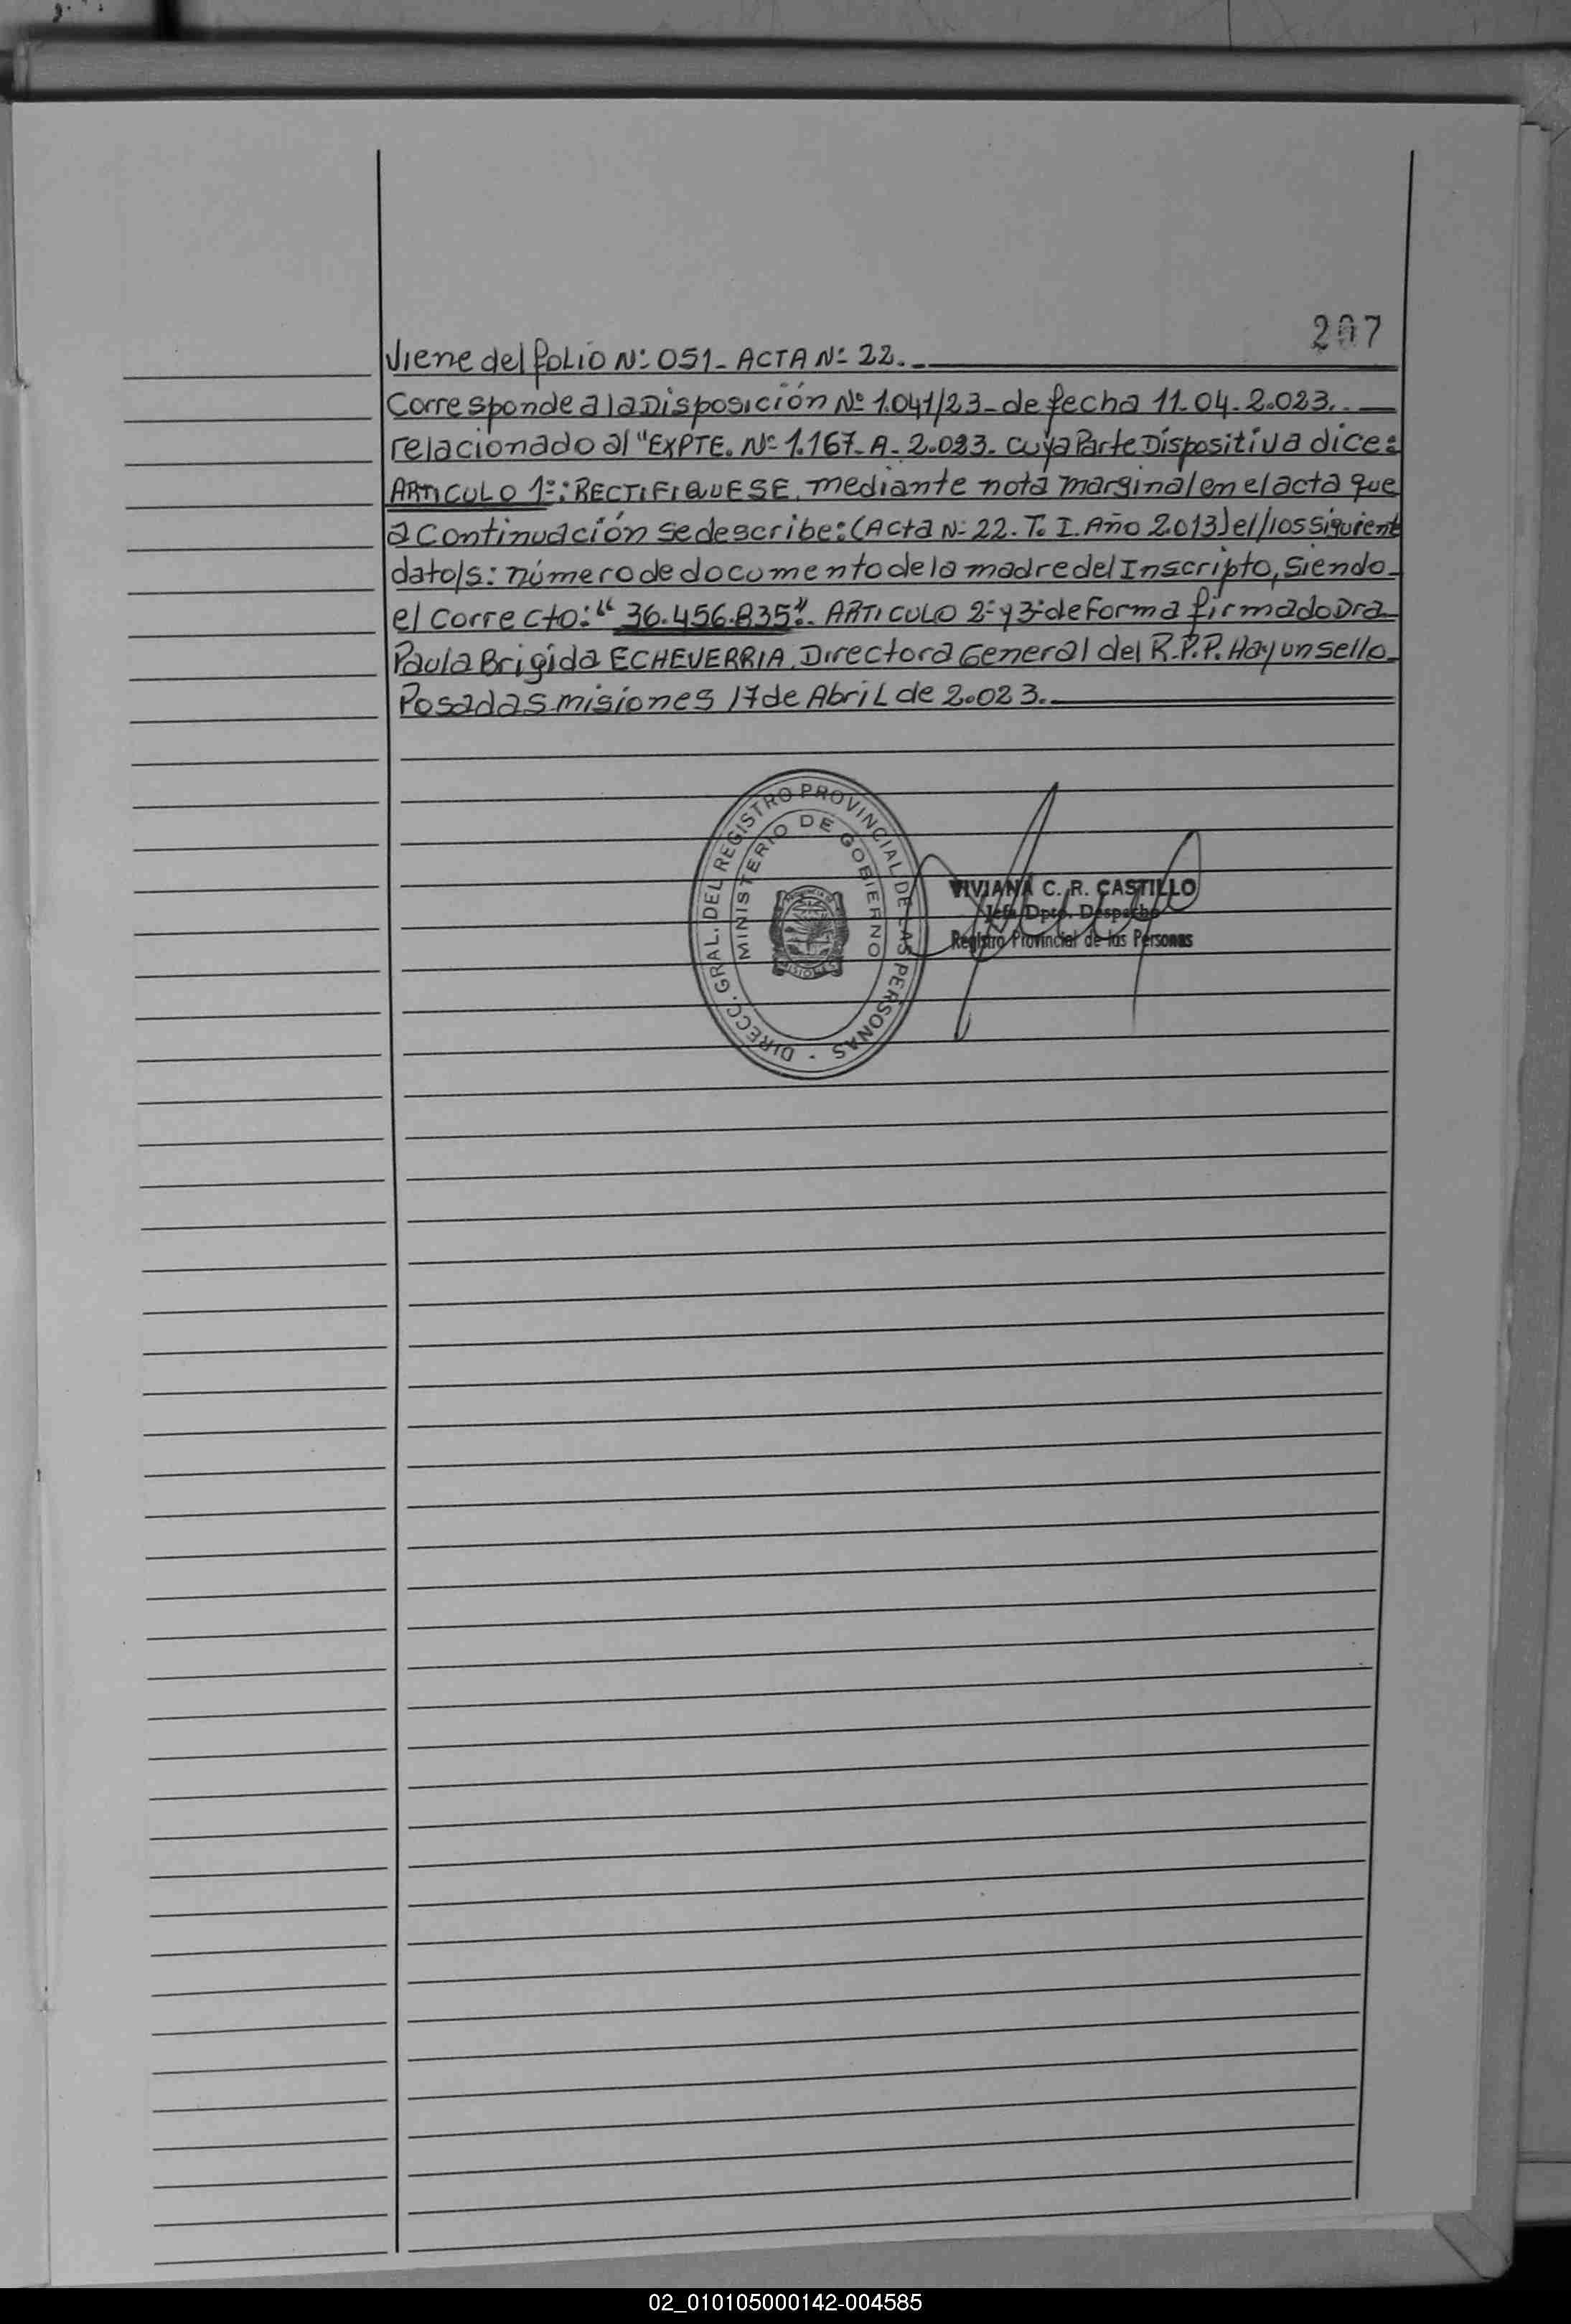 207
Viene del folio Nº 051 - ACTA Nº 22. -
Corresponde a la Disposición Nº 1.041/23 - de fecha 11-04-2.023. -
relacionado al "EXPTE. Nº 1.167-A-2.023. cuya Parte Dispositiva dice:
ARTICULO 1º: RECTIFIQUESE, mediante nota marginal en el acta que
a Continuación se describe: (Acta Nº 22. T. I. Año 2.013) el/los siguiente
dato/s: número de documento de la madre del Inscripto, siendo -
el correcto: "36.456.835". ARTICULO 2º y 3º de Forma firmado Dra -
Paula Brigida ECHEVERRIA, Directora General del R.P.P. Hay un sello -
Posadas misiones 17 de Abril de 2.023. -
DIRECC. GRAL. DEL REGISTRO PROVINCIAL DE LAS PERSONAS -
MINISTERIO DE GOBIERNO
MISIONES
VIVIANA C. R. CASTILLO
Jefa Dpto. Despacho
Registro Provincial de las Personas
02_010105000142-004585